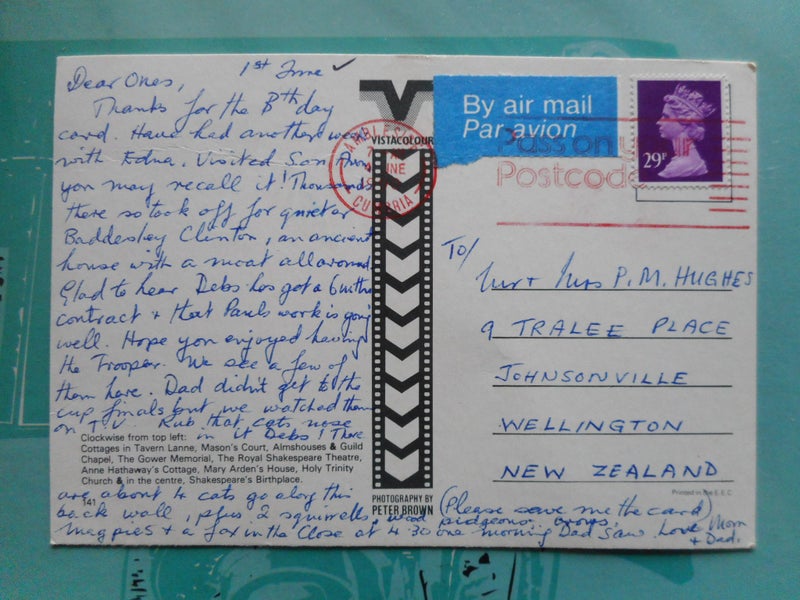 1st June
Dear Ones,
Thanks for the B'th day
card. Have had another week
with Edna. Visited Son Avon
you may recall it! Thousands
there so took off for quieter
Baddesley Clinton, an ancient
house with a moat all around.
Glad to hear Debs has got a 6 mths
contract + that Pauls work is going
well. Hope you enjoyed having
the Trooper. We see a few of
them here. Dad didn't get to the
cup finals but we watched them
on T.V. Rub that cats nose
in it Debs! There
Clockwise from top left:
Cottages in Tavern Lanne, Mason's Court, Almshouses & Guild
Chapel, The Gower Memorial, The Royal Shakespeare Theatre,
Anne Hathaway's Cottage, Mary Arden's House, Holy Trinity
Church & in the centre, Shakespeare's Birthplace.
are about 4 cats go along this
141
back wall, plus 2 squirrels, wood pidgeons, crows,
magpies + a fox in the Close at 4.30 one morning Dad saw. Love Mom
+ Dad.
(Please save me the card)
VISTACOLOUR
PHOTOGRAPHY BY
PETER BROWN
By air mail
Par avion
29P
Pass on your
Postcode
AMBLESIDE
JUNE
CUMBRIA
To/
Mr + Mrs P.M. HUGHES
9 TRALEE PLACE
JOHNSONVILLE
WELLINGTON
NEW ZEALAND
Printed in the E.E.C